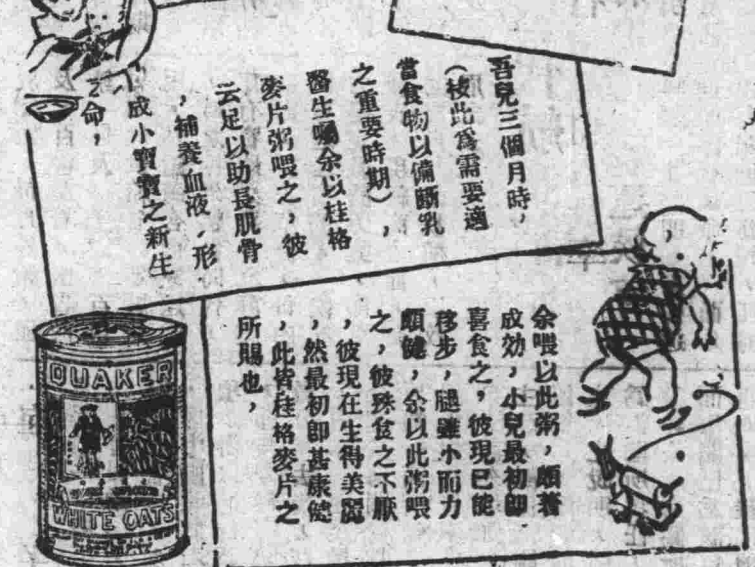 吾兒三個月時,
(枝此爲需要適
當食物以備斷乳
之重要時期),
醫生囑余以桂格
麥片粥喂之,彼
云足以助長肌骨
,補養血液,形
成小寶寶之新生
命,
余喂以此粥,頗著
成効,小兒最初卽
喜食之,彼現已能
移步,腿雖小而力
頗健,余以此粥喂
之,彼殊食之不厭
,彼現在生得美麗
,然最初卽甚康健
,此皆桂格麥片之
所賜也,
QUAKER
WHITE OATS